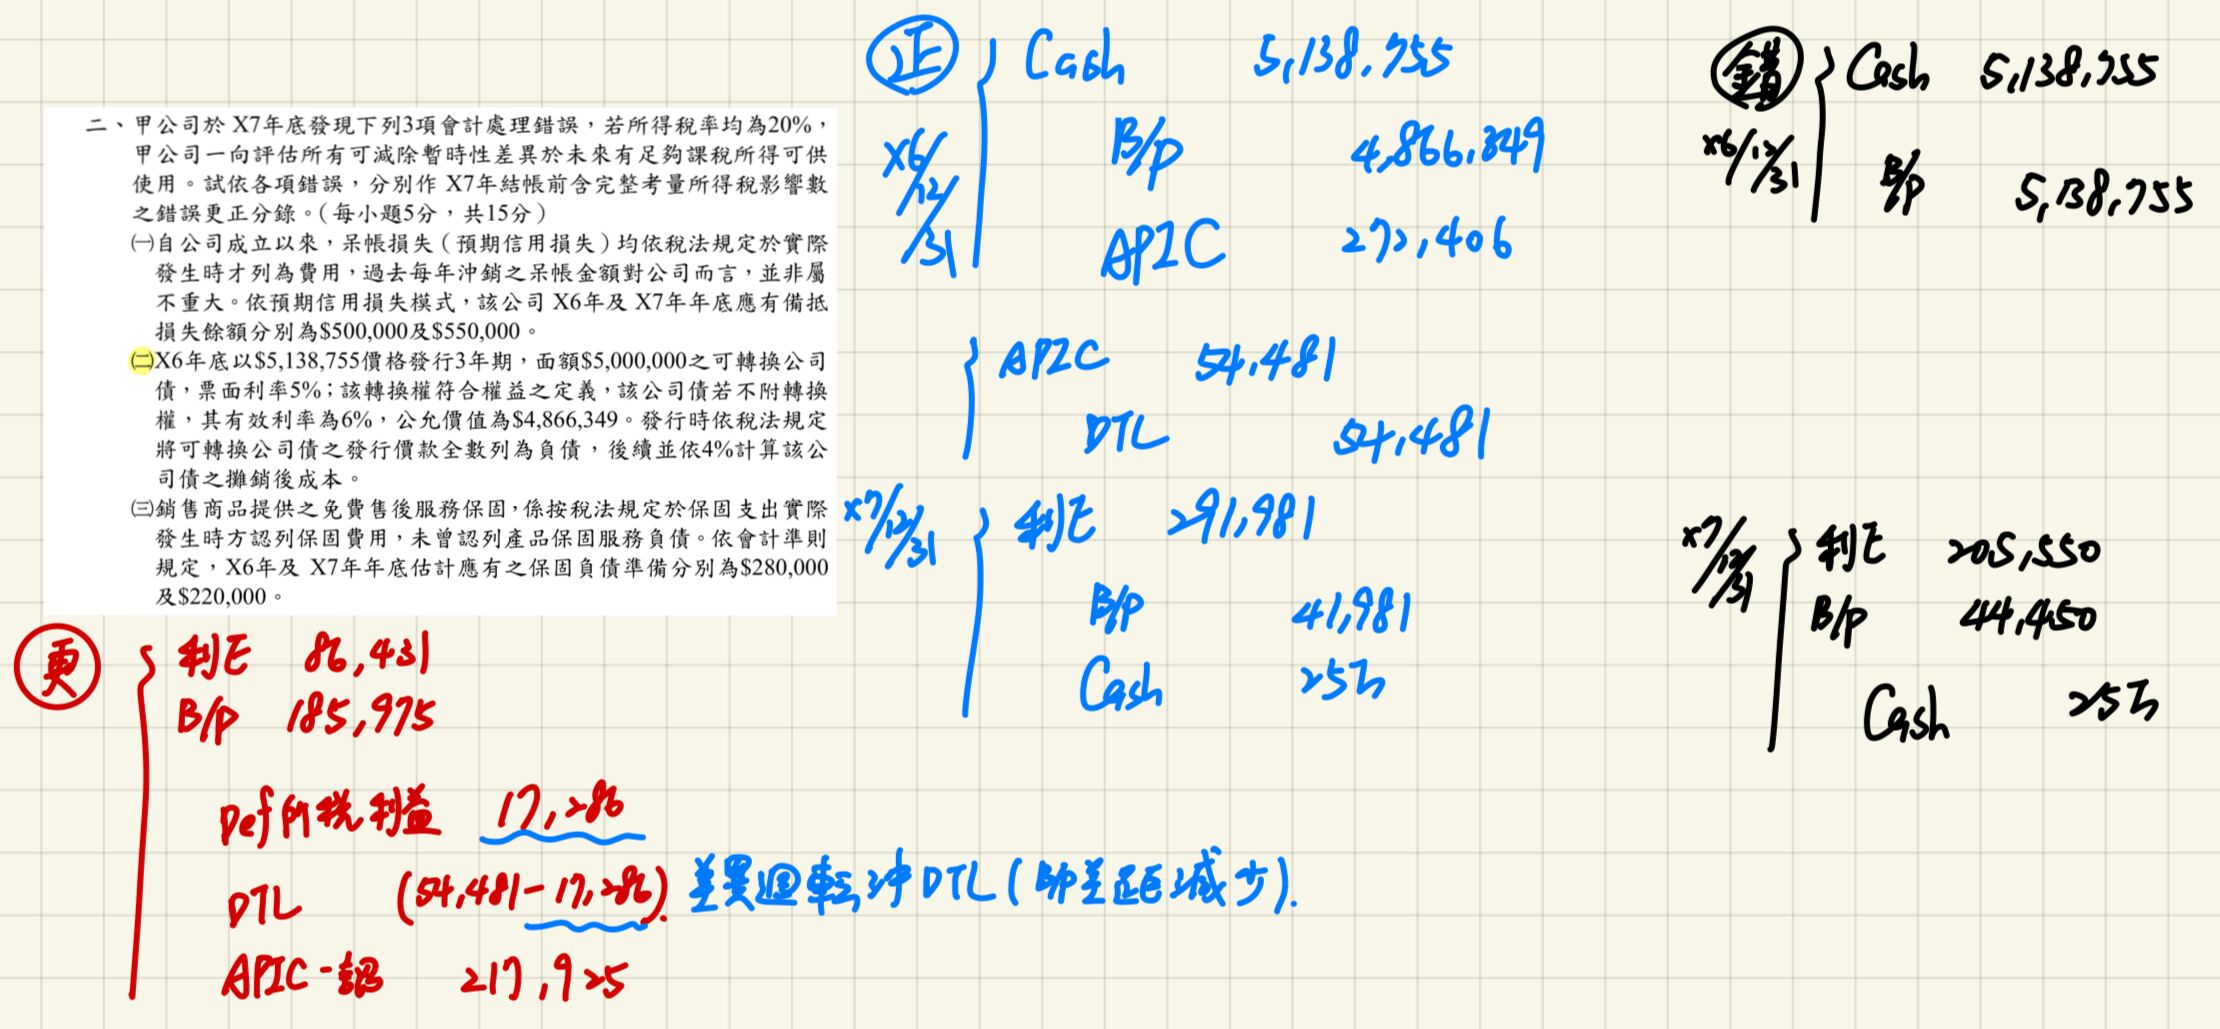 二、甲公司於 X7年底發現下列3項會計處理錯誤，若所得稅率均為20%，
甲公司一向評估所有可減除暫時性差異於未來有足夠課稅所得可供
使用。試依各項錯誤，分別作 X7年結帳前含完整考量所得稅影響數
之錯誤更正分錄。（每小題5分，共15分）
㈠自公司成立以來，呆帳損失（預期信用損失）均依稅法規定於實際
發生時才列為費用，過去每年沖銷之呆帳金額對公司而言，並非屬
不重大。依預期信用損失模式，該公司 X6年及 X7年年底應有備抵
損失餘額分別為$500,000及$550,000。
㈡X6年底以$5,138,755價格發行3年期，面額$5,000,000之可轉換公司
債，票面利率5%；該轉換權符合權益之定義，該公司債若不附轉換
權，其有效利率為6%，公允價值為$4,866,349。發行時依稅法規定
將可轉換公司債之發行價款全數列為負債，後續並依4%計算該公
司債之攤銷後成本。
㈢銷售商品提供之免費售後服務保固，係按稅法規定於保固支出實際
發生時方認列保固費用，未曾認列產品保固服務負債。依會計準則
規定，X6年及 X7年年底估計應有之保固負債準備分別為$280,000
及$220,000。
正 Cash 5,138,755
X6/12/31 B/P 4,866,349
APIC 272,406
APIC 54,481
DTL 54,481
X7/12/31 利E 291,981
B/P 41,981
Cash 25万
錯 Cash 5,138,755
X6/12/31 B/P 5,138,755
X7/12/31 利E 205,550
B/P 44,450
Cash 25万
更 利E 86,431
B/P 185,975
Def所稅利益 17,286
DTL (54,481-17,286). 差異迴転沖DTL(即差距減少).
APIC-認 217,925